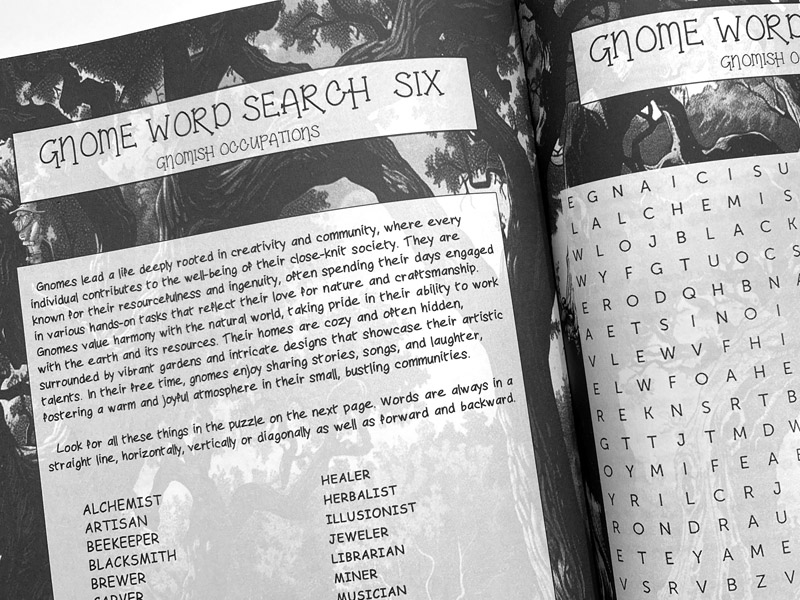 GNOME WORD SEARCH SIX
GNOMISH OCCUPATIONS
Gnomes lead a life deeply rooted in creativity and community, where every
individual contributes to the well-being of their close-knit society. They are
known for their resourcefulness and ingenuity, often spending their days engaged
in various hands-on tasks that reflect their love for nature and craftsmanship.
Gnomes value harmony with the natural world, taking pride in their ability to work
with the earth and its resources. Their homes are cozy and often hidden,
surrounded by vibrant gardens and intricate designs that showcase their artistic
talents. In their free time, gnomes enjoy sharing stories, songs, and laughter,
fostering a warm and joyful atmosphere in their small, bustling communities.
Look for all these things in the puzzle on the next page. Words are always in a
straight line, horizontally, vertically or diagonally as well as forward and backward.
ALCHEMIST
ARTISAN
BEEKEEPER
BLACKSMITH
BREWER
CARVER
HEALER
HERBALIST
ILLUSIONIST
JEWELER
LIBRARIAN
MINER
MUSICIAN
GNOME WORD
GNOMISH
E G N A I C I S U
L A L C H E M I S
W L O J B L A C K
W Y F G T U O C S
E R O D Q H B N A
A E T S I N O I
V L E W V F H I
E L W F O A H E
R E K N S R T B
G T T J T M D W
O Y M I F E A E
Y R I L C R J
R O N D R A U
E T E Y A M E
V S R V B Z V